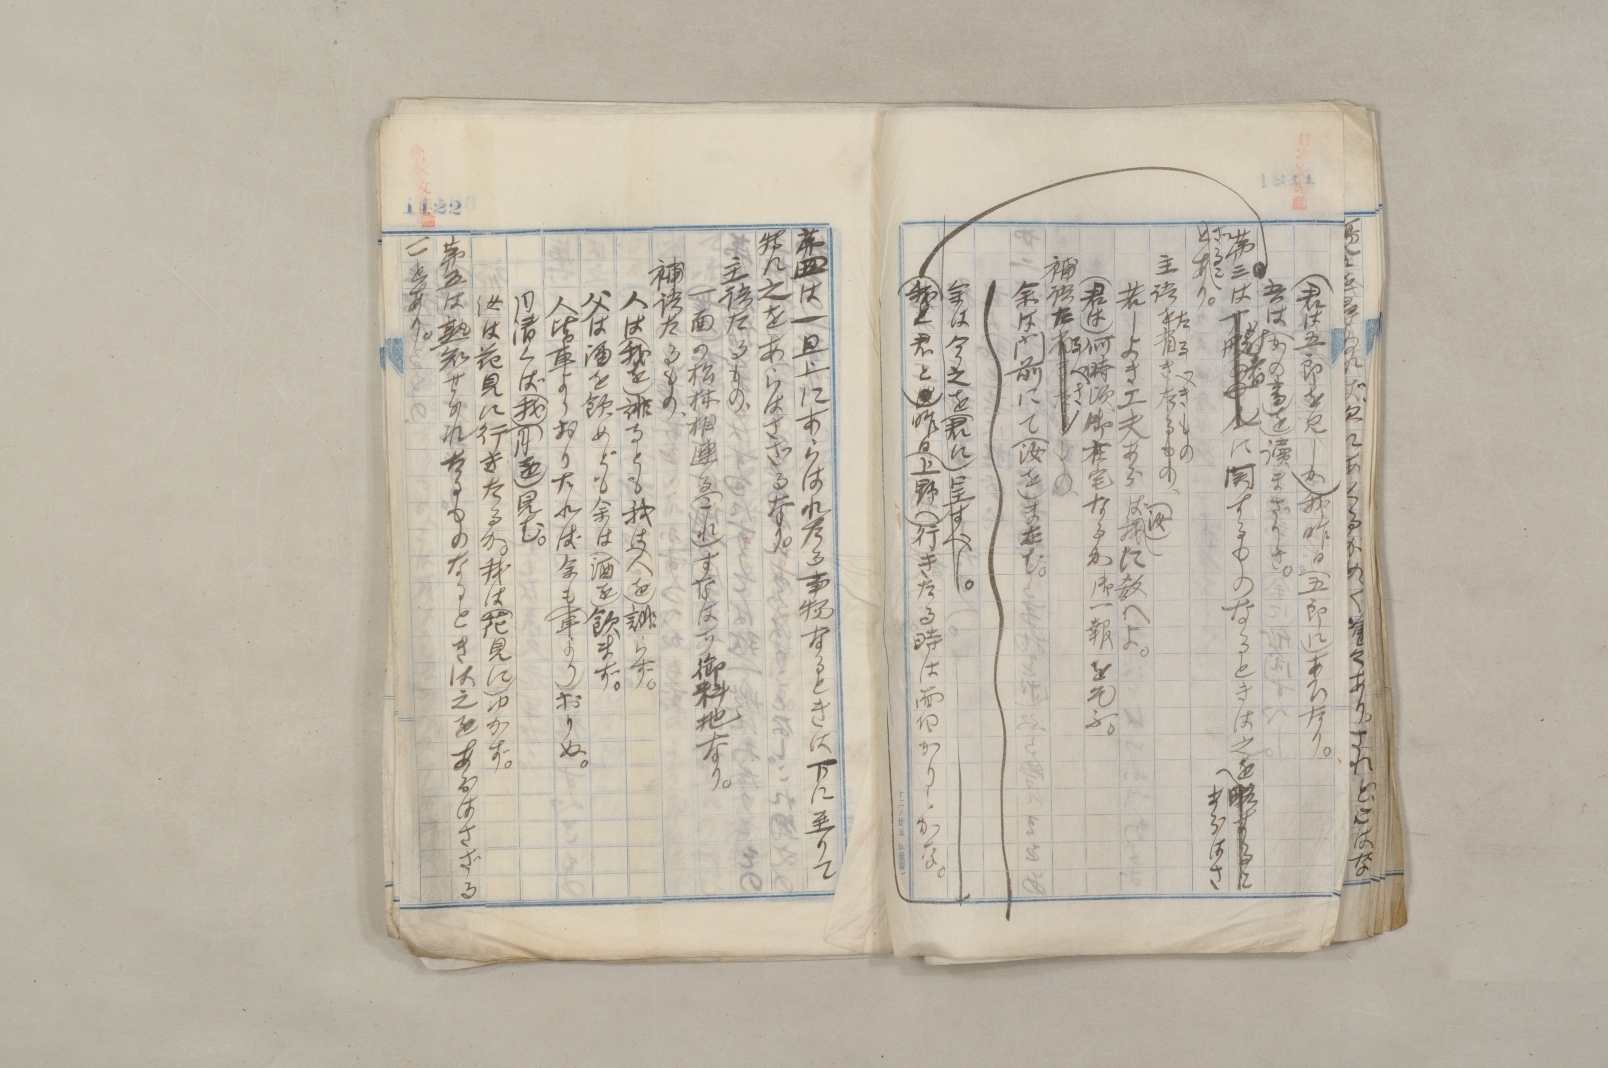 (君は五郎を見しか)我昨日(五郎に)あひたり。
吾は(かの書を)読まざりき。
第三は対者に関するものなるときは之をあらはさ
ざることあり。
主語たるべきもの
若しよき工夫あらば(汝)我に教へよ。
(君は)何時頃御在宅なるか御一報を乞ふ。
補語たるべきもの、
余は門前にて(汝を)またむ。
余は今之を(君に)呈すべし。
(我と君と)昨日上野へ行きたる時は面白かりしかな。
第四は一旦上にあらはれたる事物なるときは下に至りて
特に之をあらはさざるなり。
主語たるもの、
一面の松林相連る(これ)すなはち御料地なり。
補語たるもの、
人は(我を)誹るとも我は(人を)誹らず。
父は酒を飲めども余は(酒を)飲まず。
人皆車よりおりたれば余も(車より)おりぬ。
月清くば(我)(月を)見む。
汝は花見に行きたるか、我は(花見に)ゆかず。
第五は熟知せられたるものなるときは之をあらはさざる
ことあり。
1122